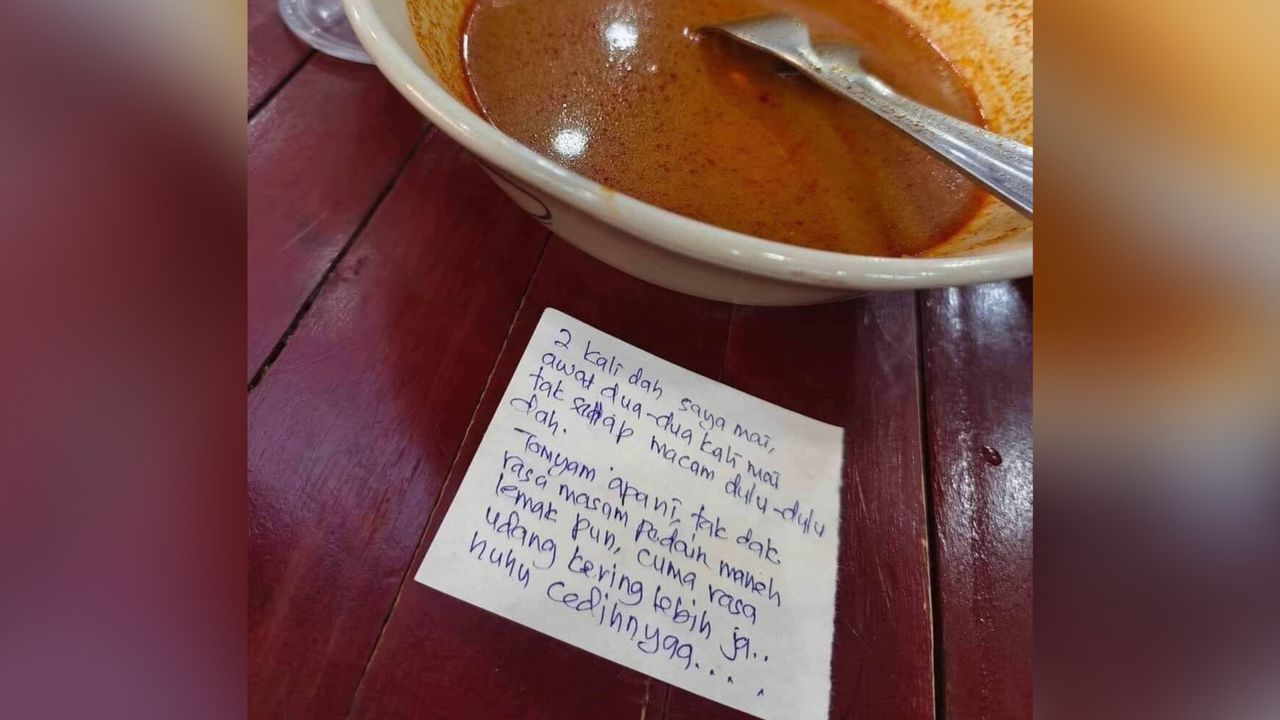 2 kali dah saya mai,
awat dua-dua kali mai
tak sedap macam dulu-dulu
dah.
Tomyam apa ni, tak dak
rasa masam pedain maneh
lemak pun, cuma rasa
udang kering lebih ja..
huhu cedihnyaa....